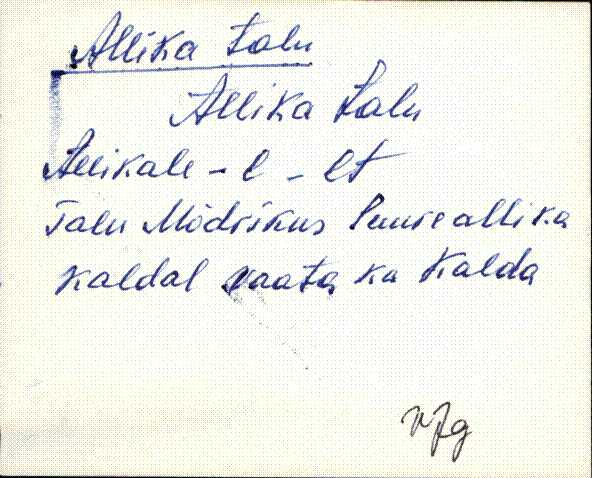 Allika talu
Allika talu
Allikale - l - lt
Talu Mõdrikus Suureallika
kaldal vaata ka Kalda
VJg